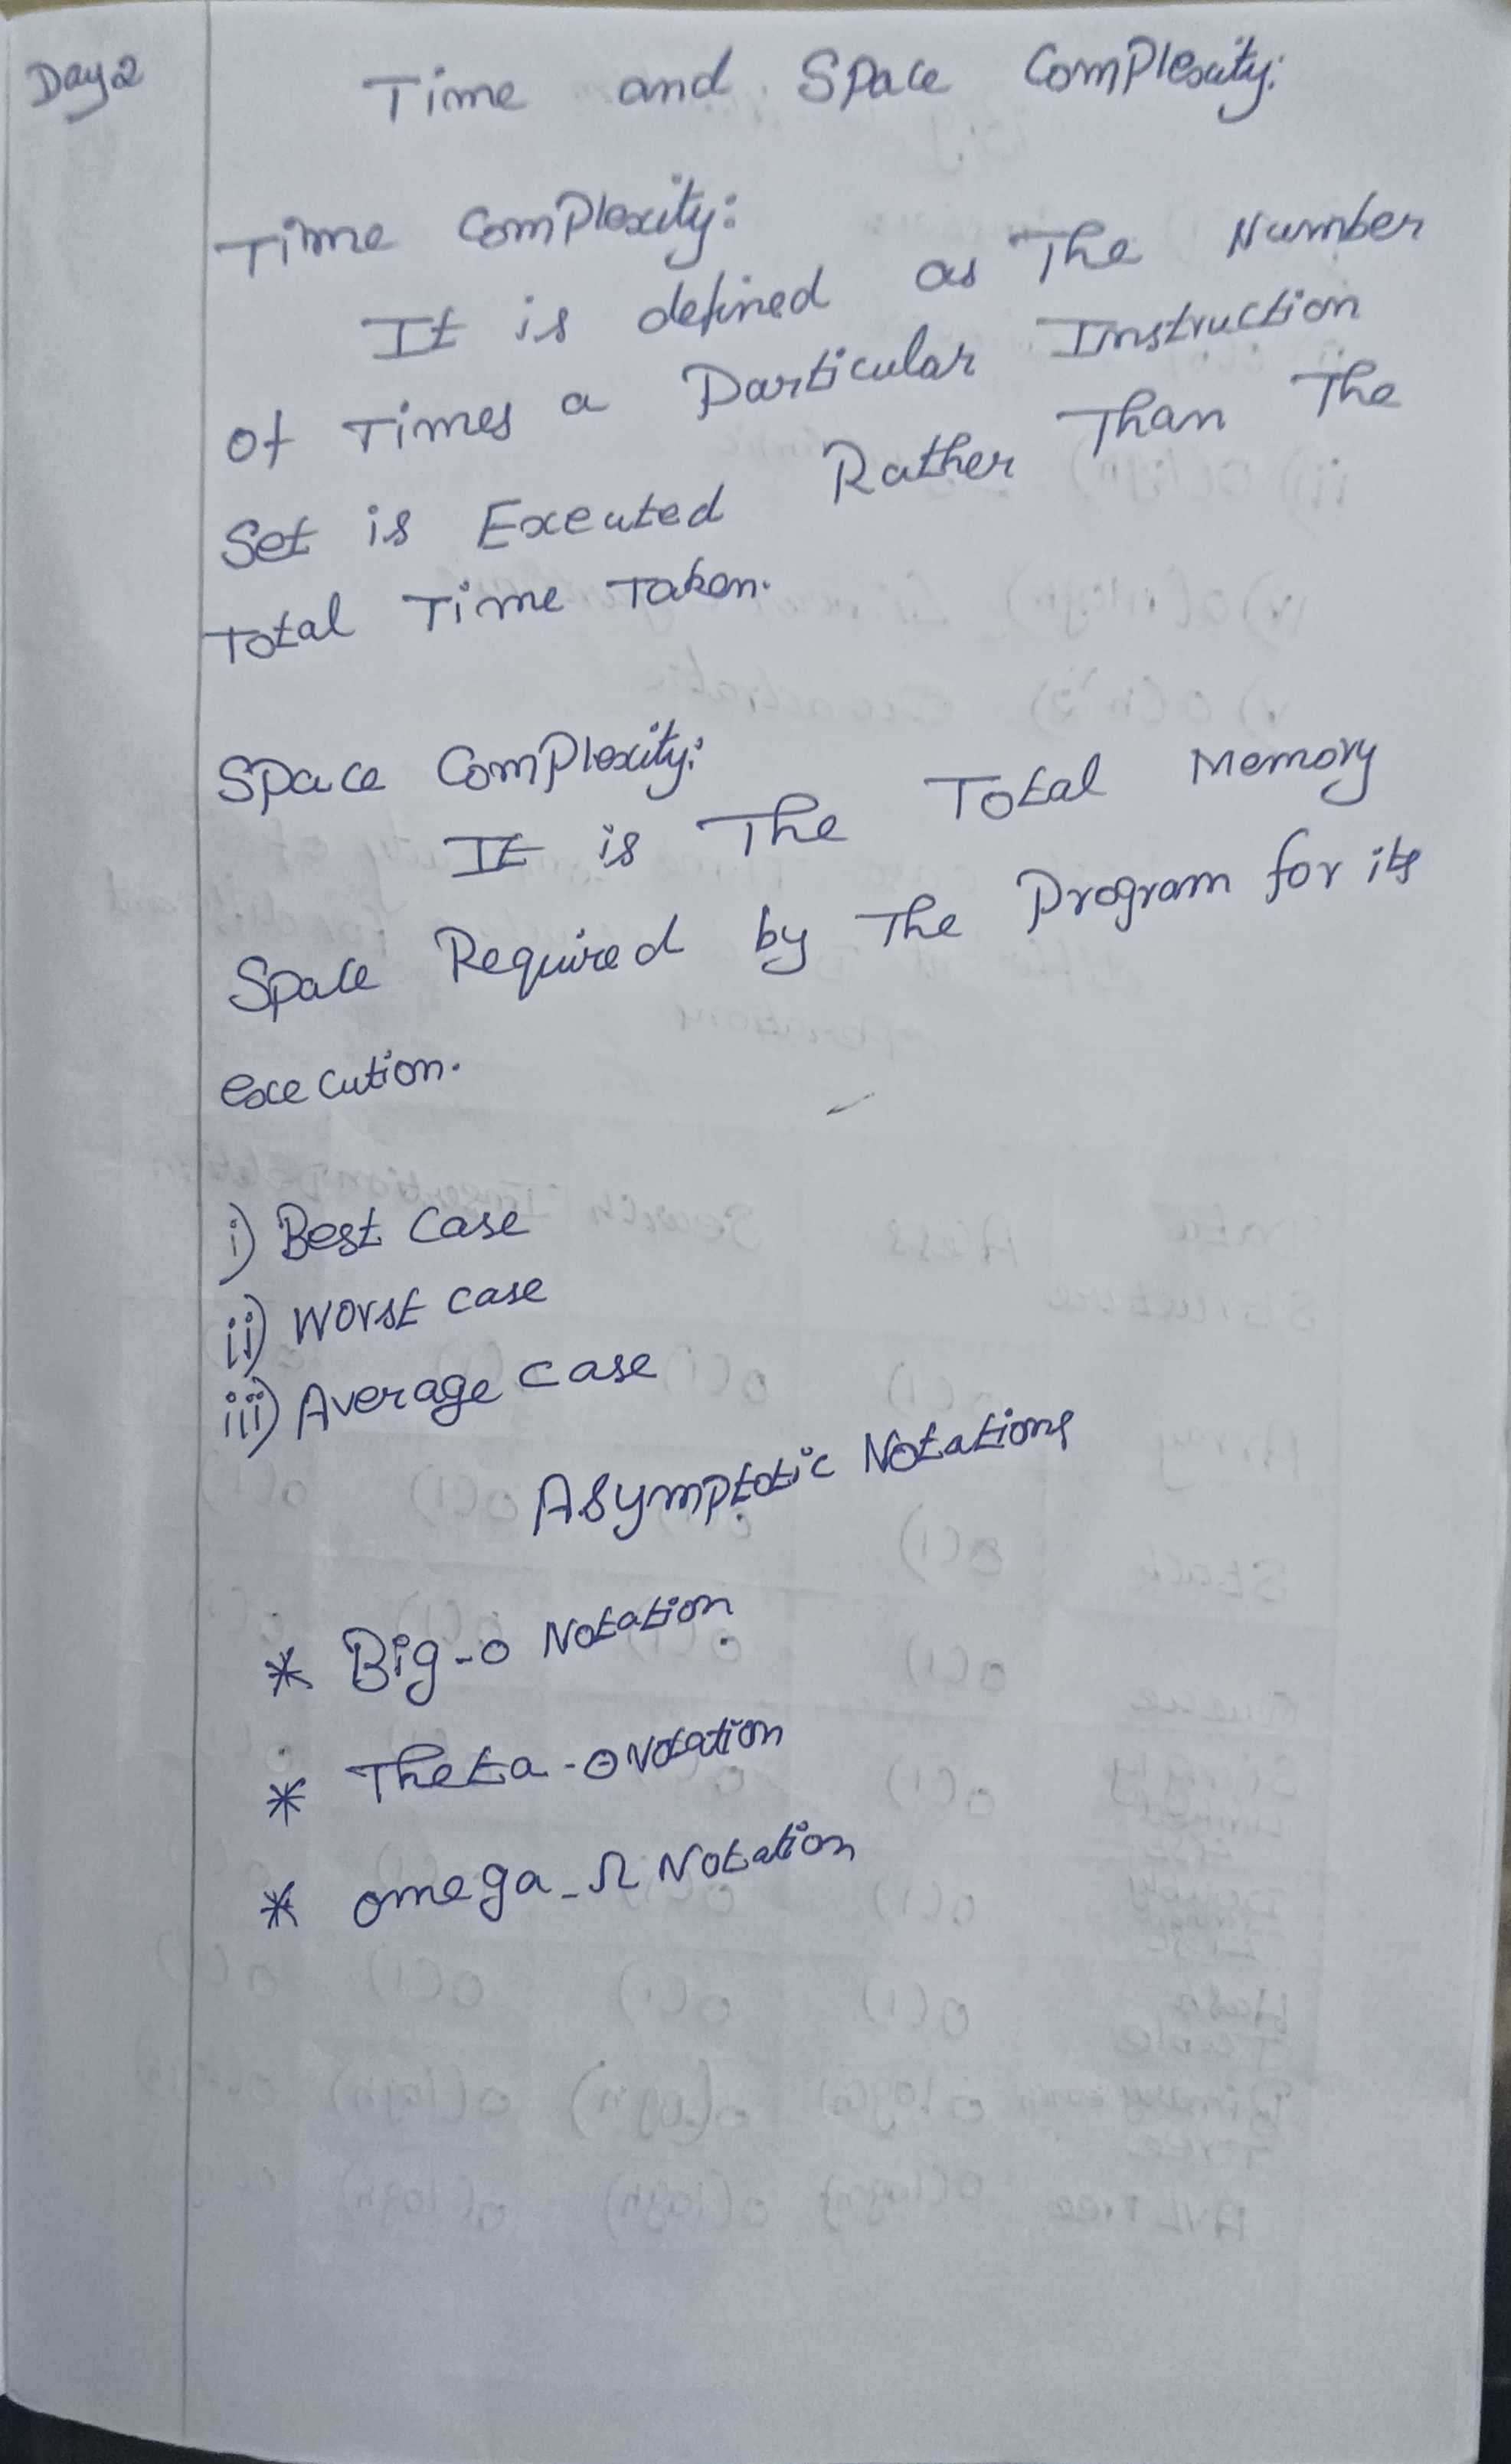 Day2
Time and Space Complexity:
Time Complexity:
It is defined as The Number
Of Times a Particular Instruction
Set is Executed Rather Than The
Total Time Taken.
Space Complexity:
It is The Total Memory
Space Required by The Program for its
execution.
i) Best Case
ii) Worst case
iii) Average case
Asymptotic Notations
* Big-o Notation
* Theta-Θ Notation
* omega-Ω Notation